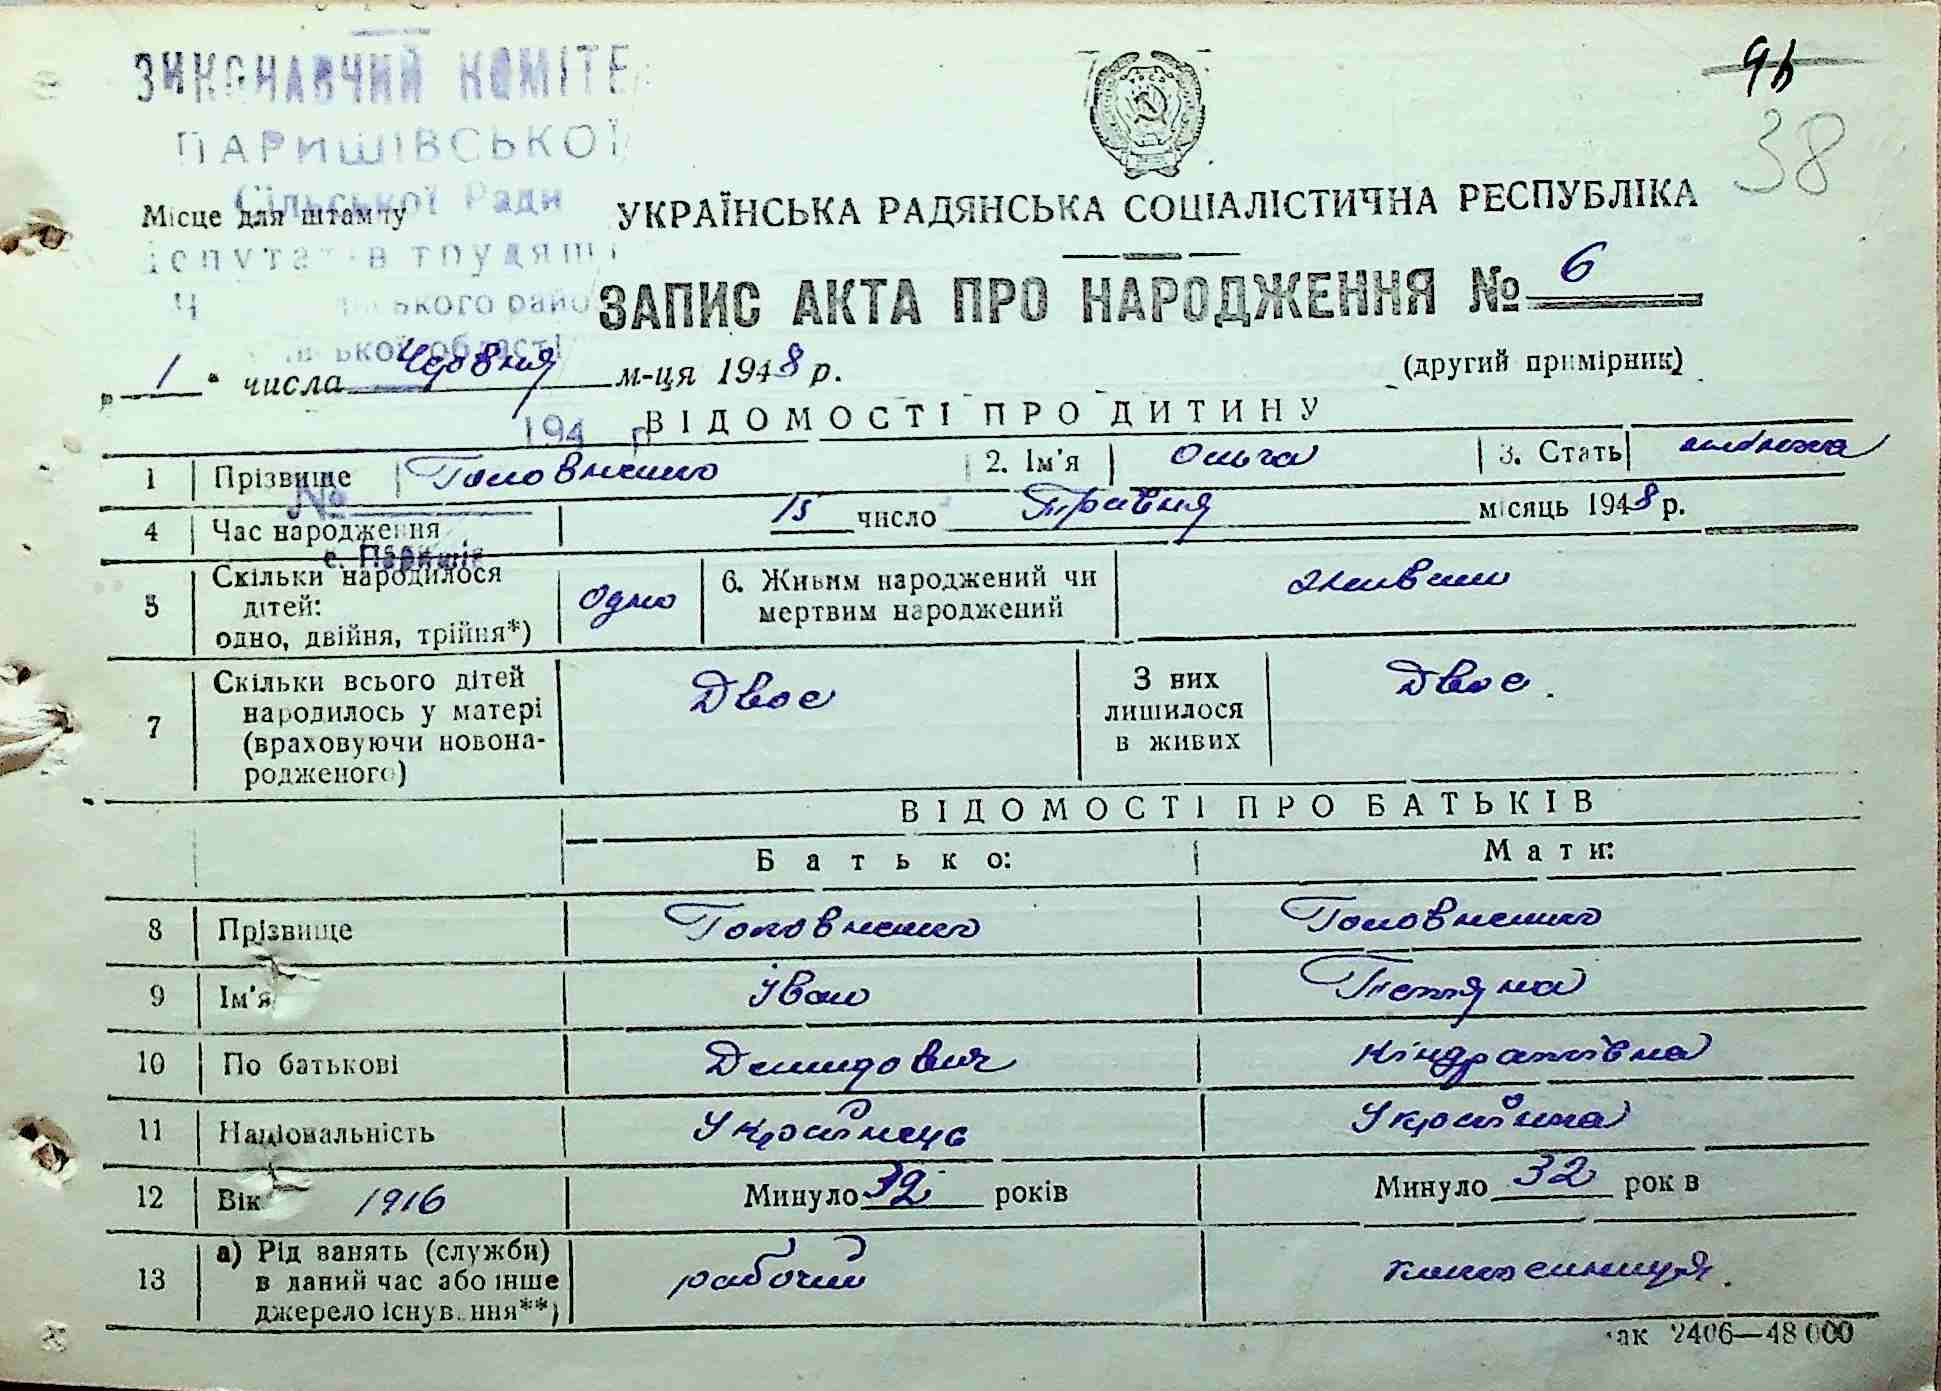 ВИКОНАВЧИЙ КОМІТЕ
ПАРИШІВСЬКОЇ
Сільської Ради
депутатів трудящ
ського райо
ської області
194 р
№
с. Паришів
94
38
Місце для штампу
УКРАЇНСЬКА РАДЯНСЬКА СОЦІАЛІСТИЧНА РЕСПУБЛІКА
ЗАПИС АКТА ПРО НАРОДЖЕННЯ № 6
„ 1 " числа Червня м-ця 1948 р.
(другий примірник)
ВІДОМОСТІ ПРО ДИТИНУ
1 Прізвище Головненко 2. Ім'я Ольга 3. Стать жіноча
4 Час народження 15 число Травня місяць 1948 р.
5 Скільки народилося дітей: одно, двійня, трійня*) одно 6. Живим народжений чи мертвим народжений живим
7 Скільки всього дітей народилось у матері (враховуючи новона-родженого) Двоє З них лишилося в живих Двоє.
ВІДОМОСТІ ПРО БАТЬКІВ
Батько: Мати:
8 Прізвище Головненко Головненко
9 Ім'я Іван Тетяна
10 По батькові Демидович Кіндратівна
11 Національність Українець Українка
12 Вік 1916 Минуло 32 років Минуло 32 рок в
13 а) Рід занять (служби) в даний час або інше джерело існув ння**) рабочий колгоспниця.
ак 2406—48 000